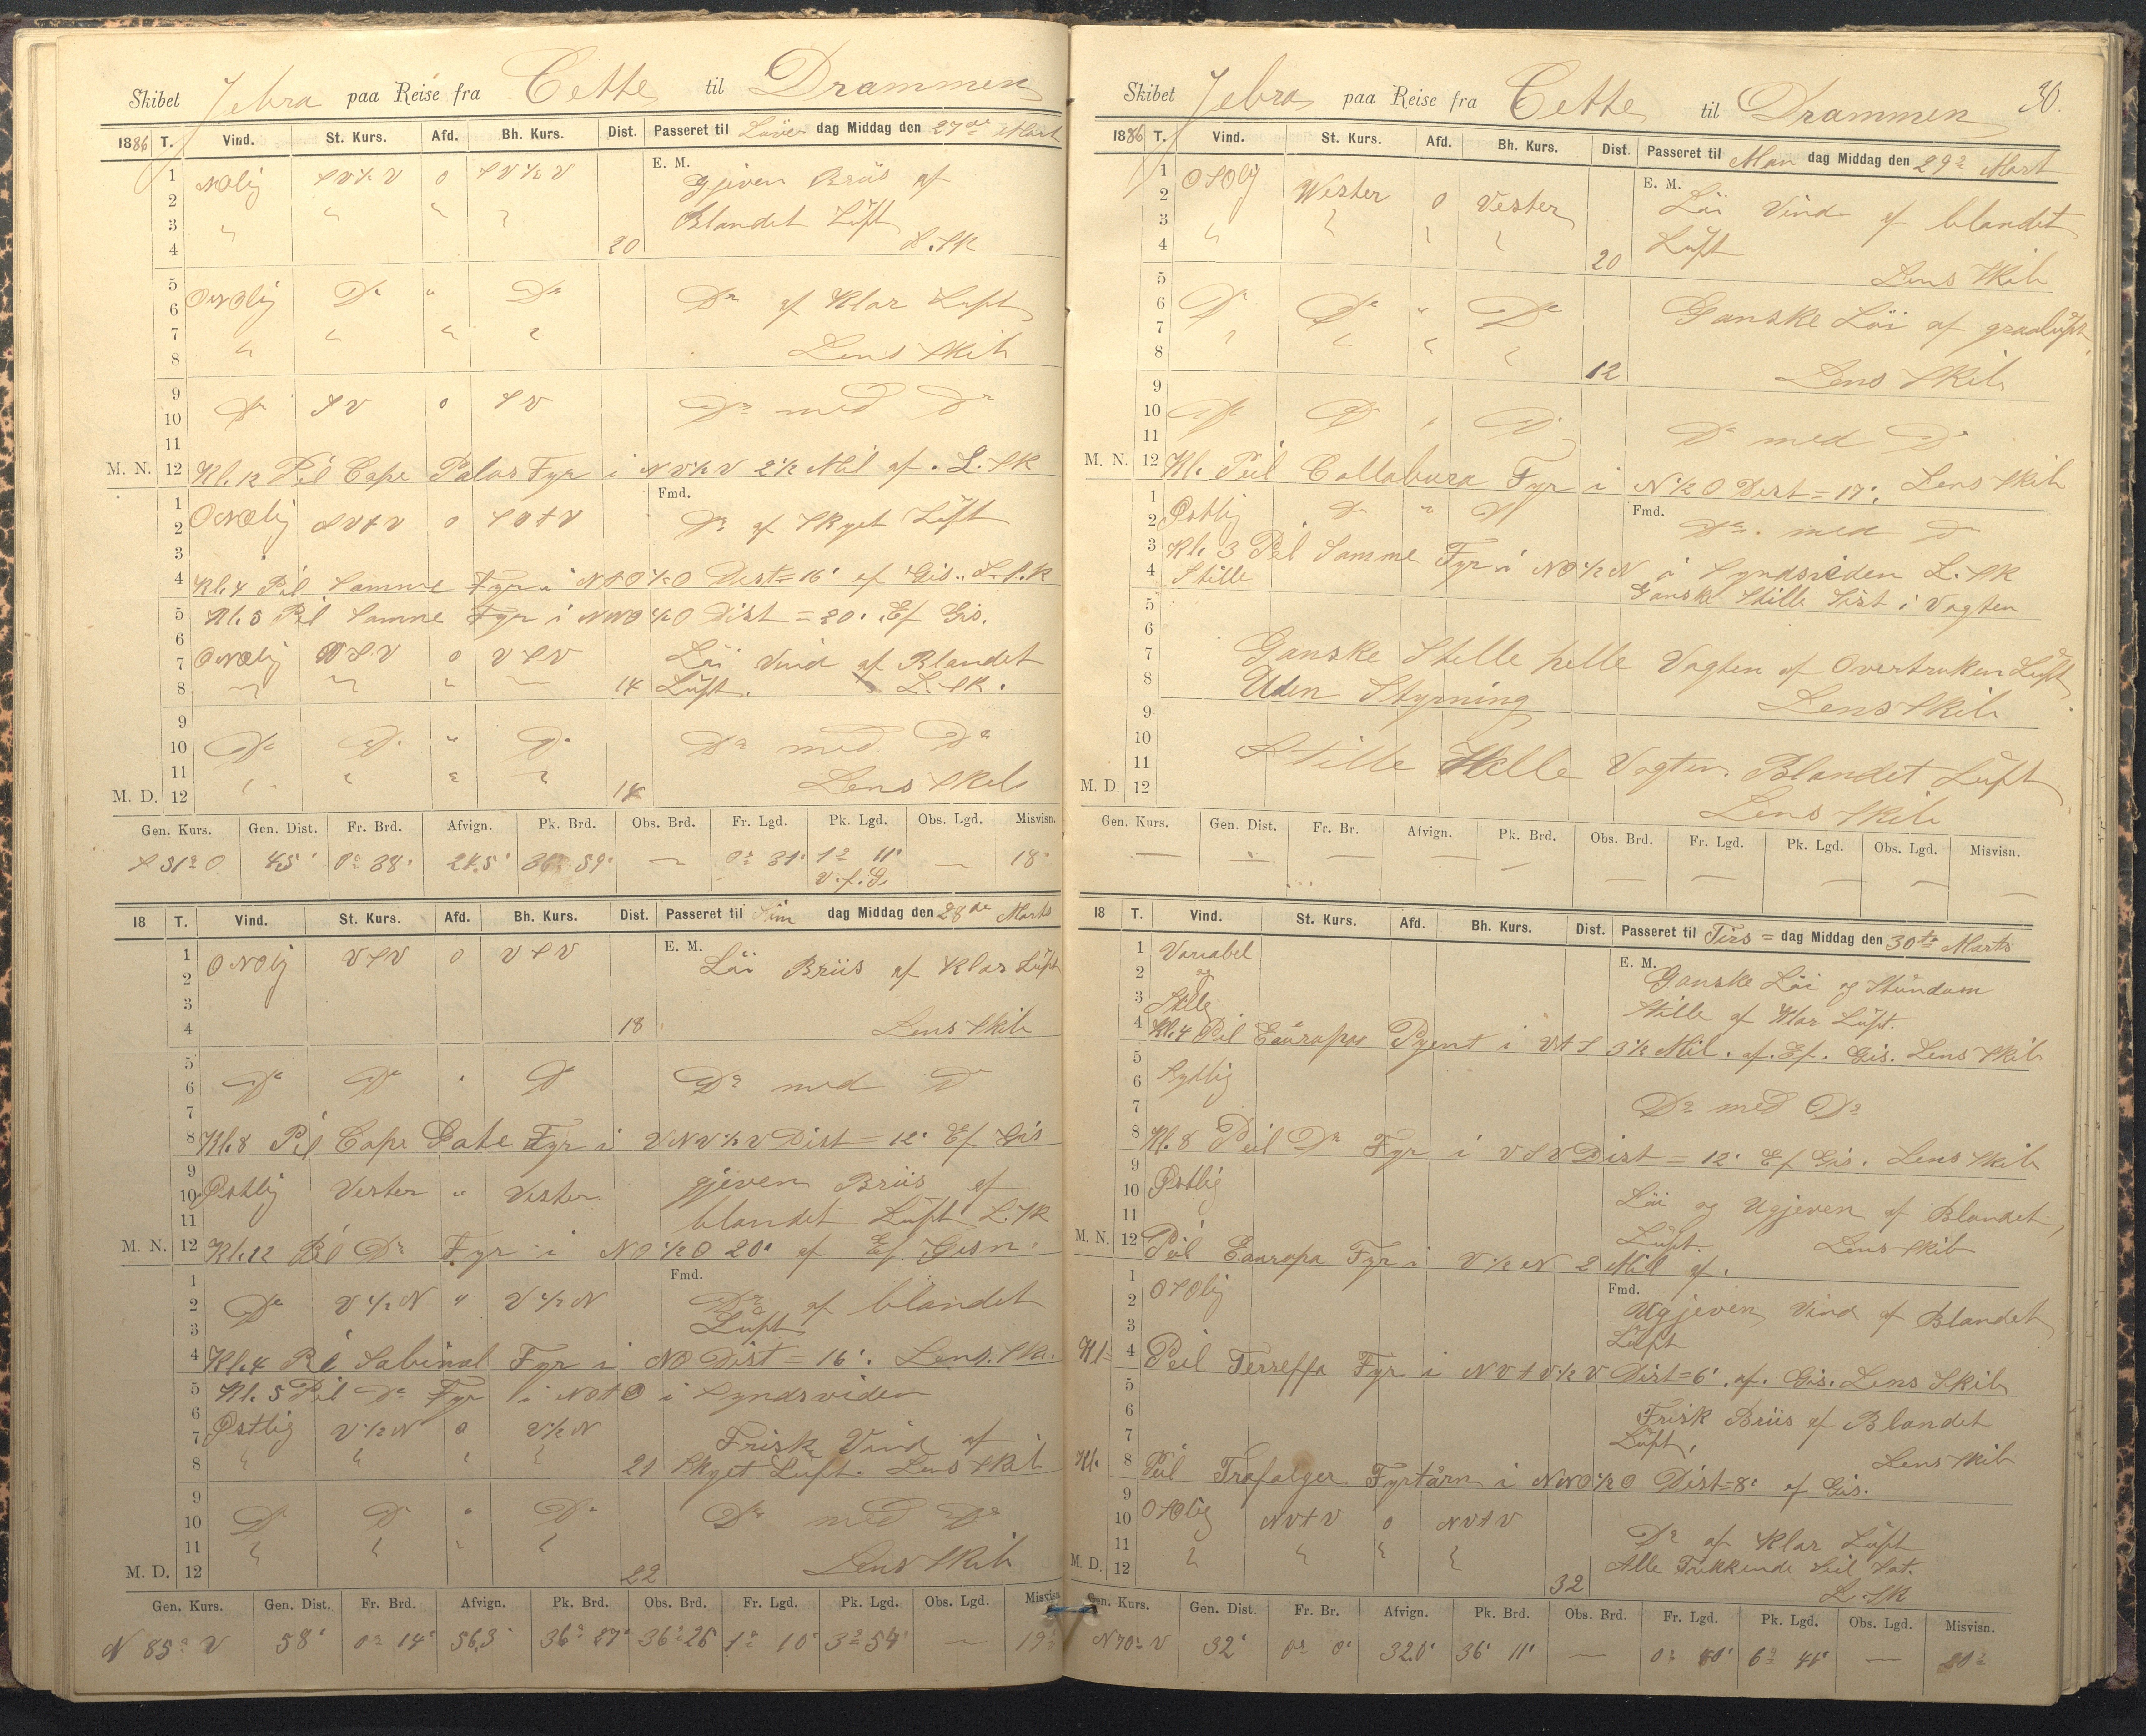 Skibet Jebra paa Reise fra Cette til Drammen
1886 T. Vind. St. Kurs. Afd. Bh. Kurs. Dist. Passeret til Löver dag Middag den 27de Mart
E. M.
1 NOlig SV½V o SV½V Gjeven Briis af
2 " " "
3 " Blandet Lüft
4 20 L. SK
5 ONOlig Do " Do Do af Klar Luft
6
7 " " " "
8 Lens Skib
9 Do SV o SV Do med Do
10
11
M. N. 12 Kl. 12 Peil Cape Palos Fyr i NV½V 2½ Mil af. L. SK
Fmd.
1 ONOlig SVtV o SVtV Do af Skyet Lüft
2
3
4 Kl. 4 Peil Samme Fyr i NtO½O Dist=16' ef Gis. L. S.K
5 Kl. 5 Peil Samme Fyr i NNO½O Dist = 20' Ef Gis.
6 ONOlig VSV o VSV Löi Vind af Blandet
7
8 14 Lüft. L. SK.
9 Do D. " Do Do med Do
10
11 " " " "
M. D. 12 14 Lens Skib
Gen. Kurs. Gen. Dist. Fr. Brd. Afvign. Pk. Brd. Obs. Brd. Fr. Lgd. Pk. Lgd. Obs. Lgd. Misvisn.
S 31° O 45' 0° 38' 24.5' 36° 59' — 0° 31' 1° 11' — 18°
V. f. G.
18 T. Vind. St. Kurs. Afd. Bh. Kurs. Dist. Passeret til Sön dag Middag den 28de Marts
E. M.
1 ONOlig VSV o VSV Löi Briis af Klar Lüft
2
3
4 18 Lens Skib
5
6 Do Do " Do Do med Do
7
8 Kl. 8 Peil Cape Gate Fyr i VNV½V Dist = 12' Ef Gis
9
10 Östlig Vester " Vester gjeven Briis af
11 blandet Lüft L. SK
M. N. 12 Kl. 12 Peil Do Fyr i NO½O 20' af Ef. Gisn.
Fmd.
1
2 Do V½N " V½N Do af blandet
3 Lüft
4 Kl. 4 Peil Sabinal Fyr i NO Dist = 16'. Lens. Sk.
5 Kl. 5 Peil Do Fyr i NOtO i Syndsviden
6 Östlig V½N o V½N Frisk Vind af
7
8 " " " " 21 Skyet Lüft. Lens Skib
9
10 Do Do " Do Do med Do
11 " " " "
M. D. 12 22 Lens Skib
Gen. Kurs. Gen. Dist. Fr. Brd. Afvign. Pk. Brd. Obs. Brd. Fr. Lgd. Pk. Lgd. Obs. Lgd. Misvisn.
N 85° V 58' 0° 14' 56.3' 36° 27' 36° 26' 1° 10' 3° 54' — 19°
Skibet Jebra paa Reise fra Cette til Drammen 30.
1886 T. Vind. St. Kurs. Afd. Bh. Kurs. Dist. Passeret til Man dag Middag den 29de Mart
E. M.
1 OSOlig Wester o Vester Löi Vind af blandet
2
3 " " " " Lüft
4 20 Lens Skib
5
6 Do Do " Do Ganske Löi af graaluft
7 " " " "
8 12 Lens Skib
9
10 Do D " D. Do med Do
11
M. N. 12 Kl. Peil Collabura Fyr i N½O Dist=17'. Lens Skib
Fmd.
1
2 Östlig D " D Do. med D
3 Kl. 3 Peil Samme Fyr i NO½N i Syndsviden L. SK
4 Stille Ganske Stille Sist i Vagten
5
6
7 Ganske Stille helle Vagten af Overtruken Lüft
8 Uden Styrning Lens Skib
9
10
11 Stille Helle Vagten. Blandet Lüft
M. D. 12 Lens Skib
Gen. Kurs. Gen. Dist. Fr. Br. Afvign. Pk. Brd. Obs. Brd. Fr. Lgd. Pk. Lgd. Obs. Lgd. Misvisn.
— — — — — — — — — —
18 T. Vind. St. Kurs. Afd. Bh. Kurs. Dist. Passeret til Tirs = dag Middag den 30te Marts
E. M.
1 Variabel Ganske Löi og Stundom
2 og
3 Stille Stille af Klar Lüft.
4 Kl. 4 Peil Eauropas Pyent i VtS 3½ Mil. af. Ef. Gis. Lens Skib
5
6 Sydlig
7 Do med Do
8 Kl. 8 Peil Do Fyr i VSV Dist = 12' Ef Gis. Lens Skib
9
10 Östlig Löi og Ugjeven af Blandet
11 Lüft. Lens Skib
M. N. 12 Peil Eauropa Fyr i V½N 2 Mil af.
Fmd.
1 OSOlig Ugjeven Vind af Blandet
2
3 Lüft
Kl= 4 Peil Terreffa Fyr i NVtV½V Dist=6'. af. Gis. Lens Skib
5
6 Frisk Briis af Blandet
7 Lüft,
Kl. 8 Peil Trafalger Fyrtårn i NNO½O Dist=8' af Gis. Lens Skib
9
10 OSOlig NVtV o NVtV Do af Klar Lüft
11 " " " " Alle Trækkende Seil Sat.
M. D. 12 32 L. SK
Gen. Kurs. Gen. Dist. Fr. Br. Afvign. Pk. Brd. Obs. Brd. Fr. Lgd. Pk. Lgd. Obs. Lgd. Misvisn.
N 70° V 32' 0° 0' 32.0' 36° 11' — 0° 40' 6° 41' — 20°